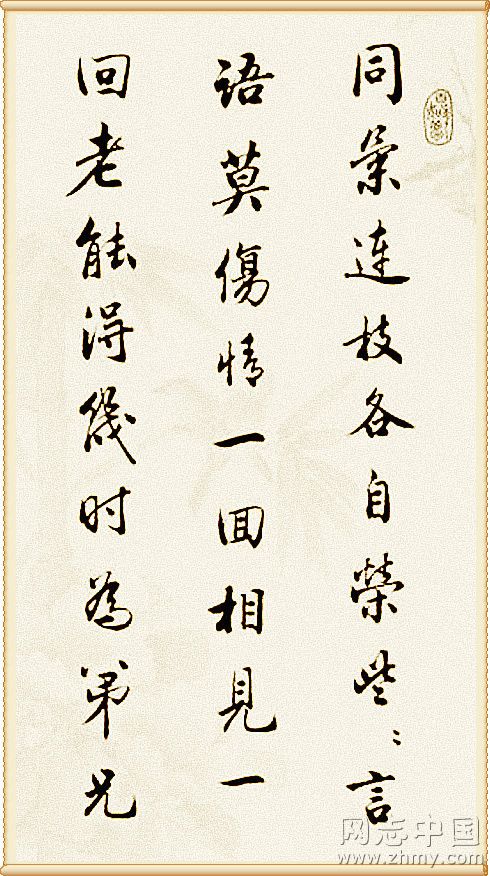 同氣連枝各自榮些々言
语莫傷情一回相見一
回老能得幾时為弟兄
网志中国
www.zhmy.com